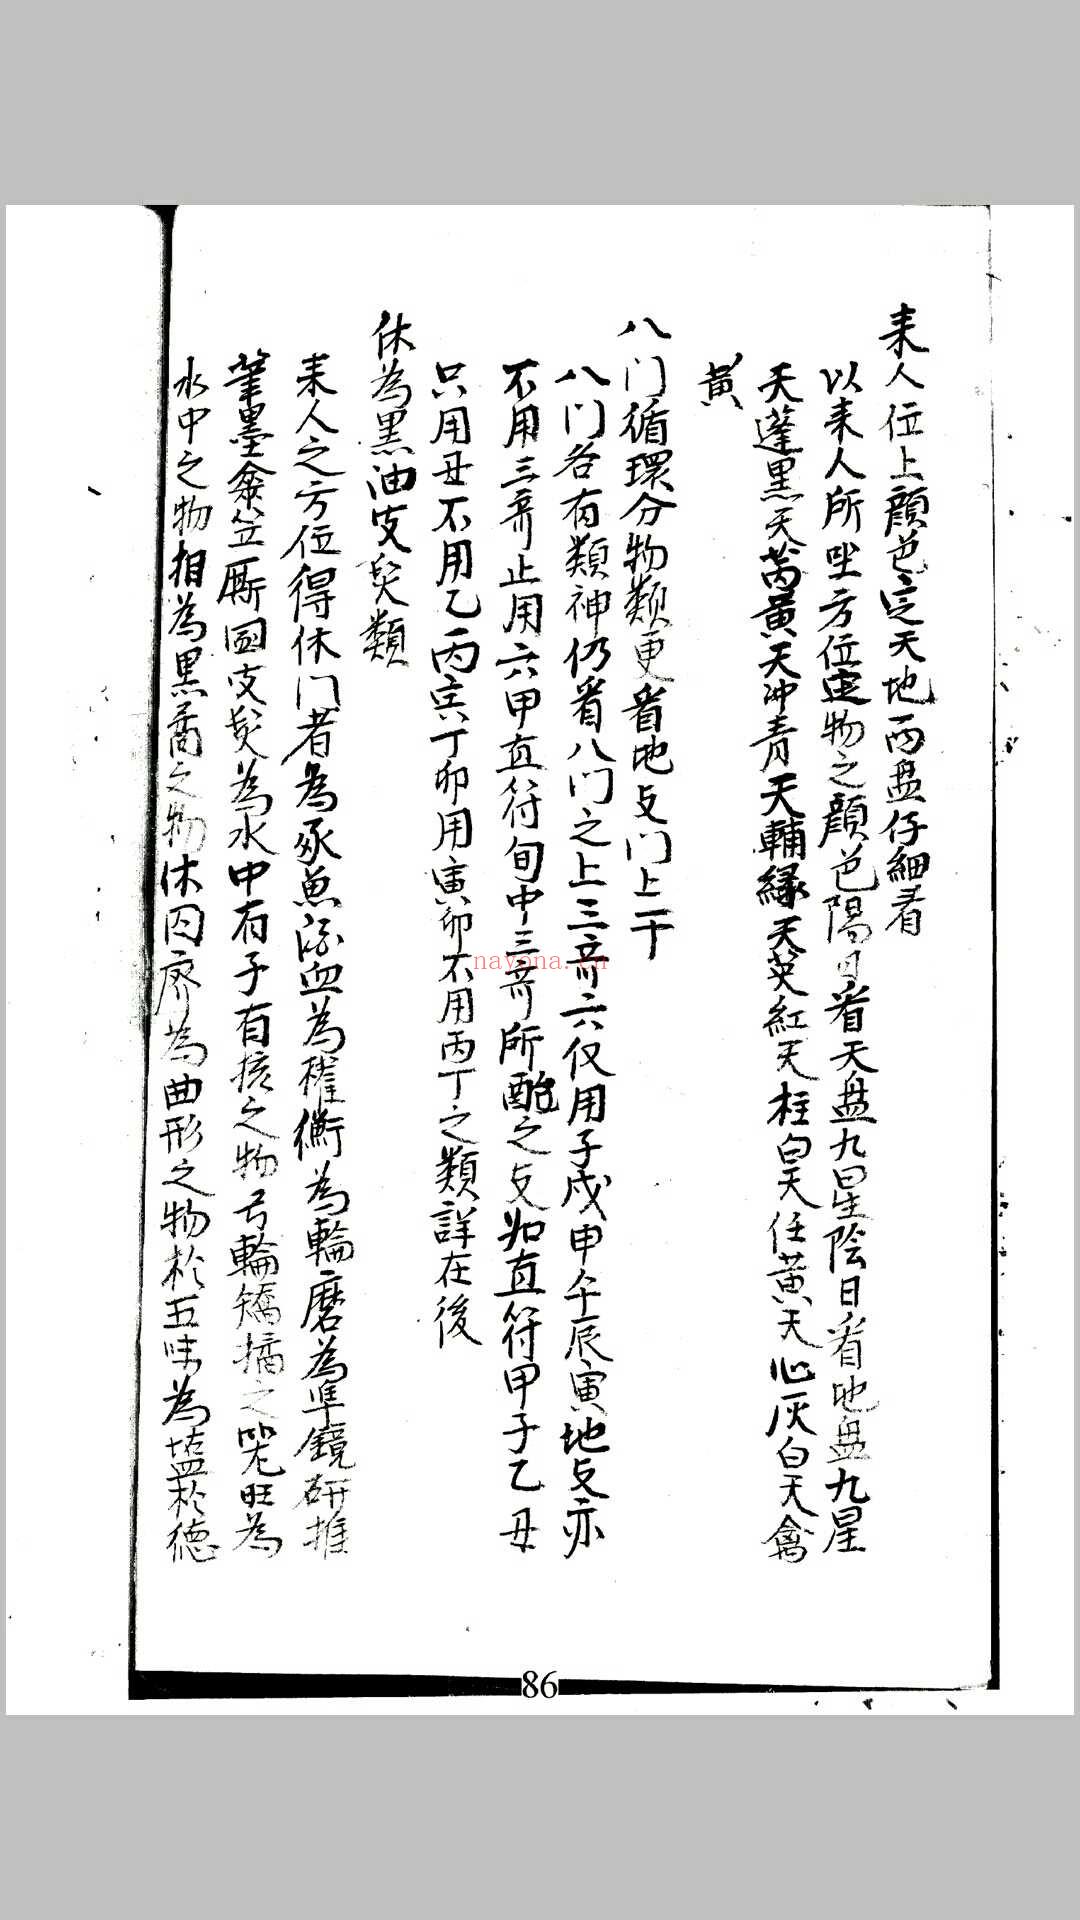 来人位上顔色定天地两盘仔細看
以来人所坐方位定物之顔色陽日看天盘九星陰日看地盘九星
天蓬黑天芮黄天冲青天輔緑天英紅天柱白天任黄天心灰白天禽
黄
八门循環分物類更看地支门上干
八门各有類神仍看八门之上三奇六仪用子戌申午辰寅地支亦
不用三奇止用六甲直符旬中三奇所配之支如直符甲子乙丑
只用丑不用乙丙寅丁卯用寅卯不用丙丁之類詳在後
休為黑油皮髪類
来人之方位得休门者為豕魚流血為權衡為輪磨為準鏡研推
筆墨傘笠厮圂皮髪為水中有子有核之物弓輪矯揉之 旺為
水中之物相為黑 之物休囚廢為曲形之物於五味為塩於德
nayona.cn
86